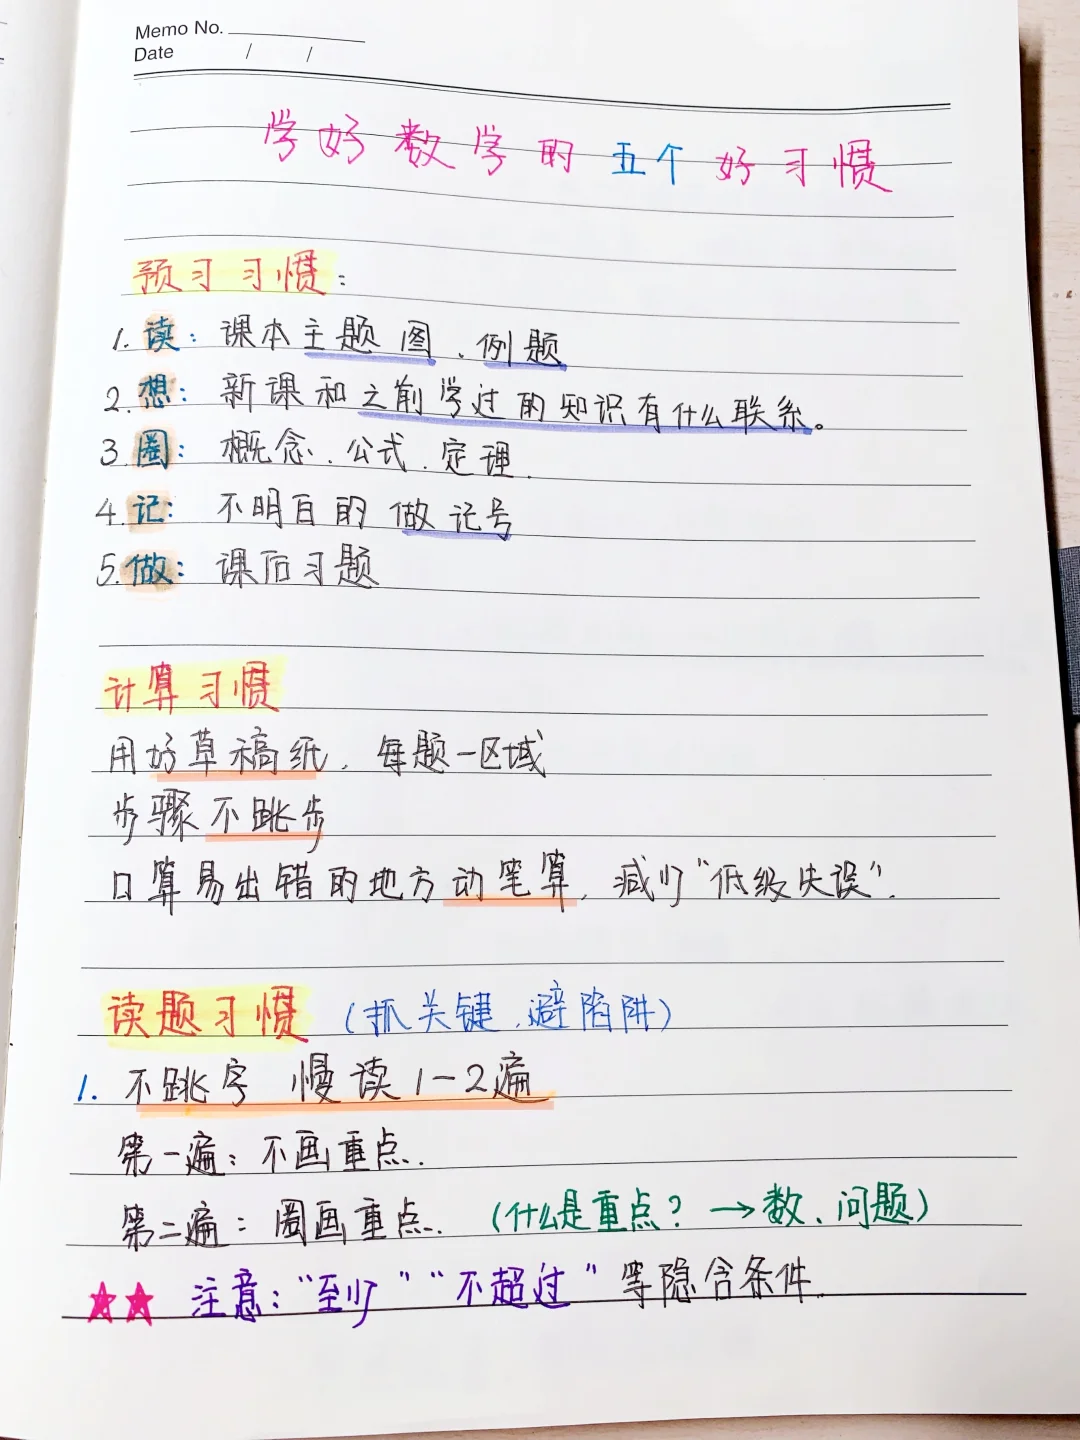 Memo No.
Date / /
学好数学的五个好习惯
预习习惯:
1.读:课本主题图、例题
2.想:新课和之前学过的知识有什么联系。
3.圈:概念、公式、定理.
4.记:不明白的做记号
5.做:课后习题
计算习惯
用好草稿纸,每题一区域
步骤不跳步
口算易出错的地方动笔算,减少“低级失误”.
读题习惯(抓关键,避陷阱)
1.不跳字 慢读1-2遍
第一遍:不画重点.
第二遍:圈画重点.(什么是重点?→数、问题)
★★ 注意:“至少”“不超过”等隐含条件.